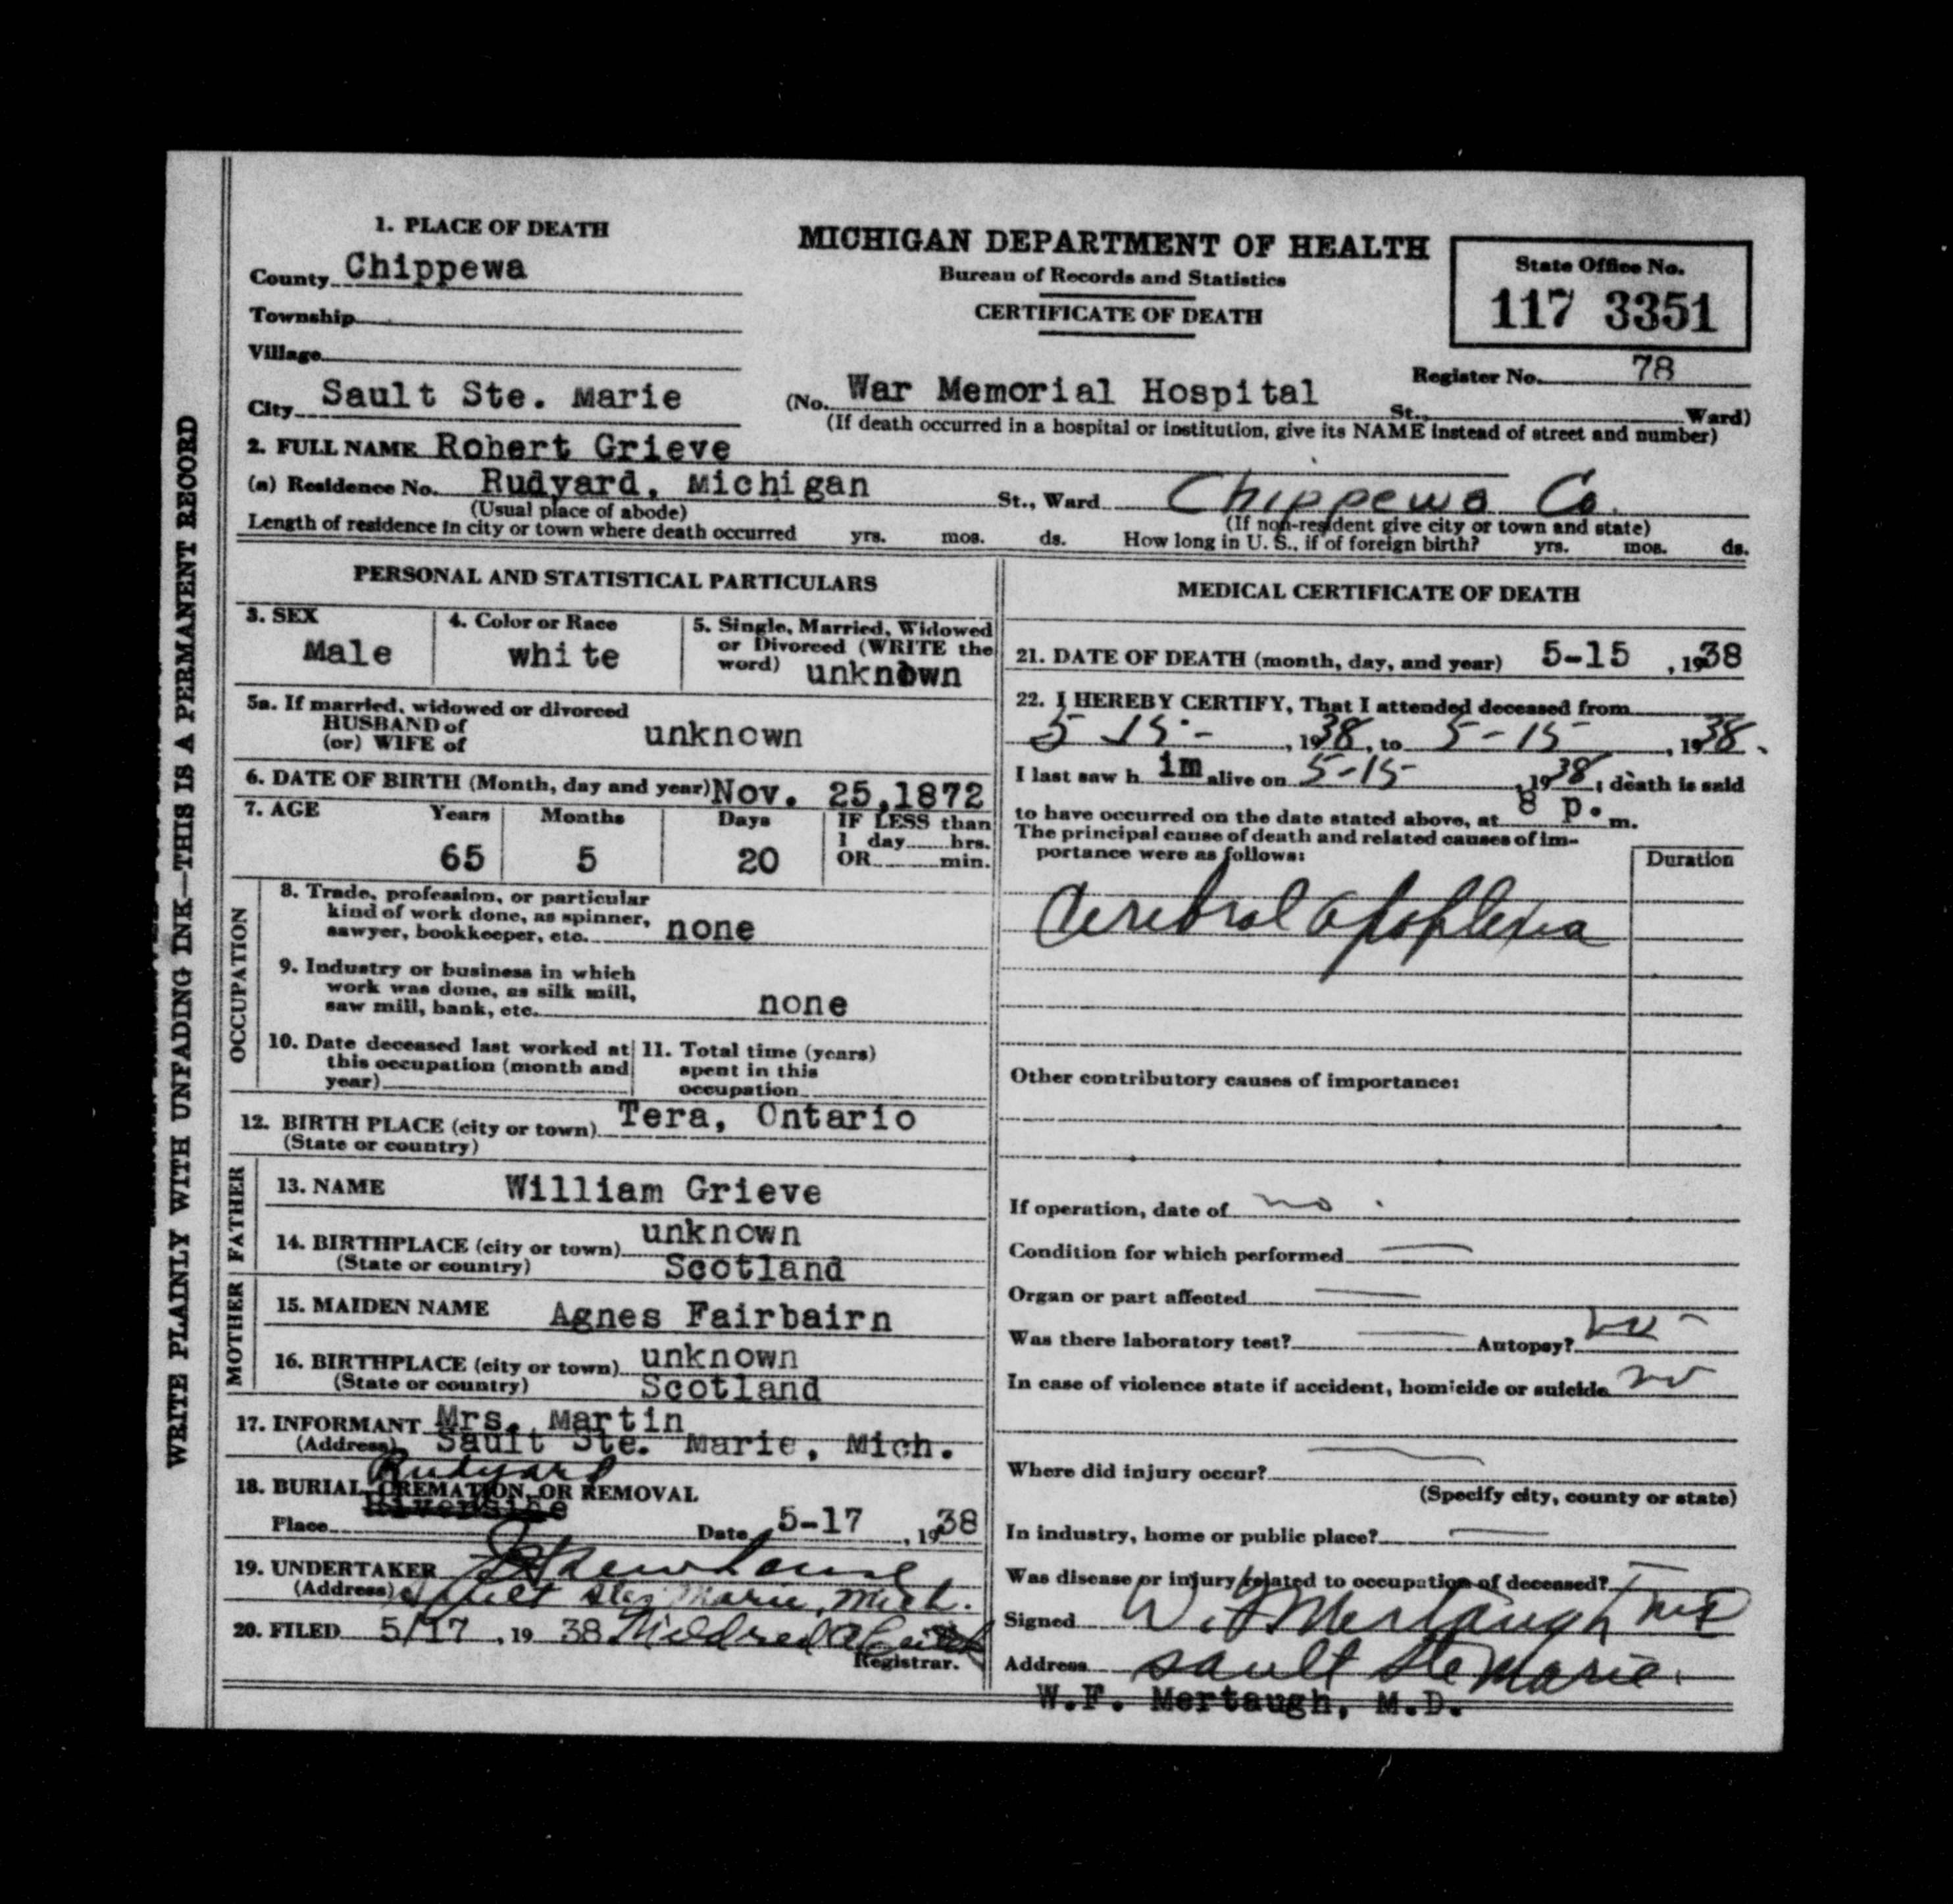 1. PLACE OF DEATH
County Chippewa
Township
Village
City Sault Ste. Marie
MICHIGAN DEPARTMENT OF HEALTH
Bureau of Records and Statistics
CERTIFICATE OF DEATH
State Office No.
117 3351
Register No. 78
(No. War Memorial Hospital St., Ward)
(If death occurred in a hospital or institution, give its NAME instead of street and number)
2. FULL NAME Robert Grieve
(a) Residence No. Rudyard, Michigan St., Ward Chippewa Co.
(Usual place of abode) (If non-resident give city or town and state)
Length of residence in city or town where death occurred yrs. mos. ds. How long in U. S., if of foreign birth? yrs. mos. ds.
WRITE PLAINLY WITH UNFADING INK—THIS IS A PERMANENT RECORD
PERSONAL AND STATISTICAL PARTICULARS
3. SEX
Male
4. Color or Race
white
5. Single, Married, Widowed
or Divorced (WRITE the
word) unknown
5a. If married, widowed or divorced
HUSBAND of
(or) WIFE of unknown
6. DATE OF BIRTH (Month, day and year) Nov. 25, 1872
7. AGE Years Months Days IF LESS than
1 day hrs.
OR min.
65 5 20
OCCUPATION
8. Trade, profession, or particular
kind of work done, as spinner,
sawyer, bookkeeper, etc. none
9. Industry or business in which
work was done, as silk mill,
saw mill, bank, etc. none
10. Date deceased last worked at
this occupation (month and
year)
11. Total time (years)
spent in this
occupation
12. BIRTH PLACE (city or town) Tera, Ontario
(State or country)
FATHER
13. NAME William Grieve
14. BIRTHPLACE (city or town) unknown
(State or country) Scotland
MOTHER
15. MAIDEN NAME Agnes Fairbairn
16. BIRTHPLACE (city or town) unknown
(State or country) Scotland
17. INFORMANT Mrs. Martin
(Address) Sault Ste. Marie, Mich.
Rudyard
18. BURIAL, CREMATION, OR REMOVAL
Riverside
Place Date 5-17, 1938
19. UNDERTAKER
(Address) Sault Ste. Marie, Mich.
20. FILED 5/17, 19 38 Mildred A
Registrar.
MEDICAL CERTIFICATE OF DEATH
21. DATE OF DEATH (month, day, and year) 5-15, 1938
22. I HEREBY CERTIFY, That I attended deceased from
5 15 -, 1938, to 5-15, 1938.
I last saw h im alive on 5-15, 1938, death is said
to have occurred on the date stated above, at 8 p. m.
The principal cause of death and related causes of im-
portance were as follows:
Duration
Cerebral apoplexia
Other contributory causes of importance:
If operation, date of no.
Condition for which performed —
Organ or part affected —
Was there laboratory test? — Autopsy? no -
In case of violence state if accident, homicide or suicide no
Where did injury occur?
(Specify city, county or state)
In industry, home or public place? —
Was disease or injury related to occupation of deceased? —
Signed W. F. Mertaugh MD
Address Sault Ste Marie.
W.F. Mertaugh, M.D.